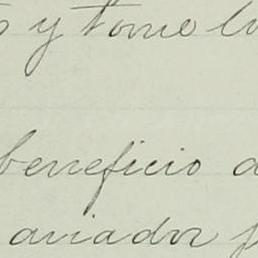 y tome
beneficio
aviador